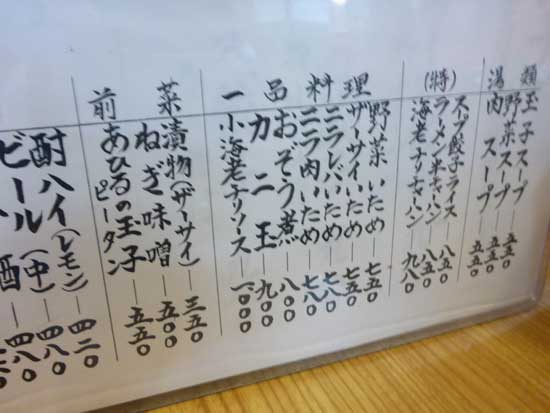 湯類
玉子スープ 五五〇
野菜スープ 五五〇
肉スープ 五五〇
(特)
スープ餃子ライス 八五〇
ラーメン半チャーハン 八五〇
海老チリチャーハン 九八〇
一品料理
野菜いため 七五〇
ザーサイいため 七五〇
ニラレバいため 七五〇
ニラ肉いため 七八〇
おぞう煮 八〇〇
カニ玉 九〇〇
小海老チリソース 一、〇〇〇
前菜
漬物(ザーサイ) 三五〇
ねぎ味噌 五〇〇
あひるの玉子(ピータン) 五五〇
酎ハイ(レモン) 四二〇
ビール(中) 四八〇
酒